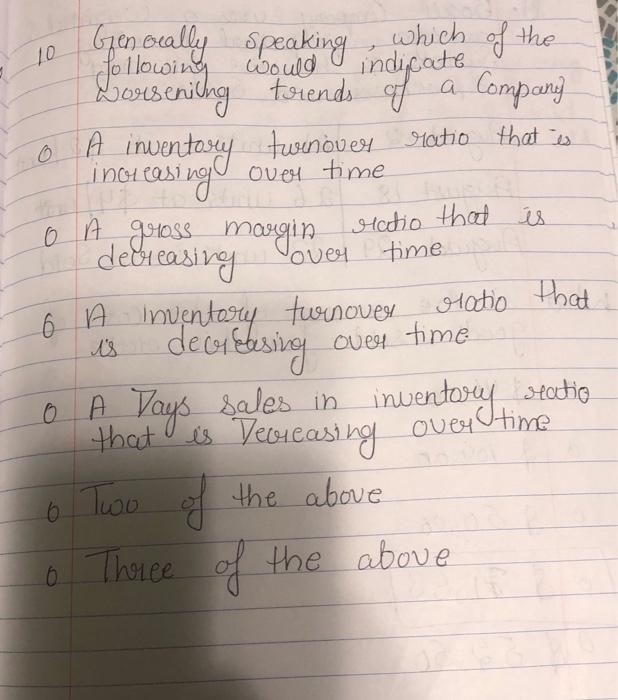 10 Generally speaking, which of the
following would indicate
worsenilng trends of a Company
O A inventory turnover ratio that is
increasing over time
O A gross margin ratio that is
decreasing over time
O A inventory turnover ratio that
is decreasing over time
O A Days sales in inventory ratio
that is Decreasing over time
O Two of the above
O Three of the above